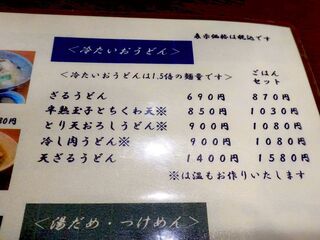 表示価格は税込です
<冷たいおうどん>
<冷たいおうどんは1.5倍の麺量です>
ごはん
セット
ざるうどん 690円 870円
半熟玉子とちくわ天※ 850円 1030円
とり天おろしうどん※ 900円 1080円
冷し肉うどん※ 900円 1080円
天ざるうどん 1400円 1580円
※は温もお作りいたします
<湯だめ・つけめん>
80円